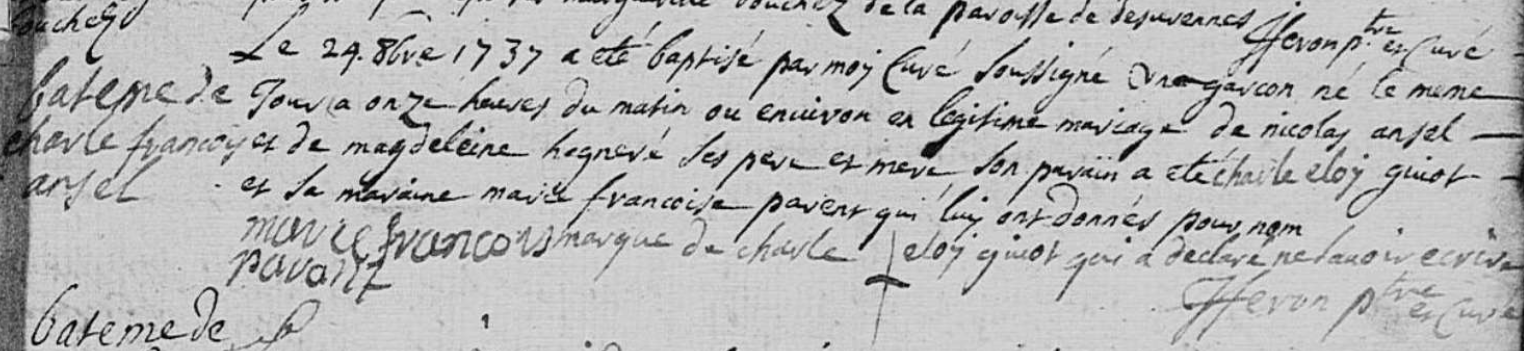 de la paroisse de desurennes
JHevon ptre et Curé
Le 29. 8bre 1737 a eté baptisé par moy Curé Soussigné Un garcon né le meme
bateme de
charle françoys
ansel
Jour a onze heures du matin ou enuiron en legitime mariage de nicolas ansel
et de magdeleine hegneré Ses pere et mere Son parain a eté charle eloy guiot
et Sa maraine marie francoise parent qui luy ont donnés pour nom
marie francois marque de charle eloy guiot qui a declaré ne scauoir ecrire
parant
JHevon ptre et Curé
bateme de